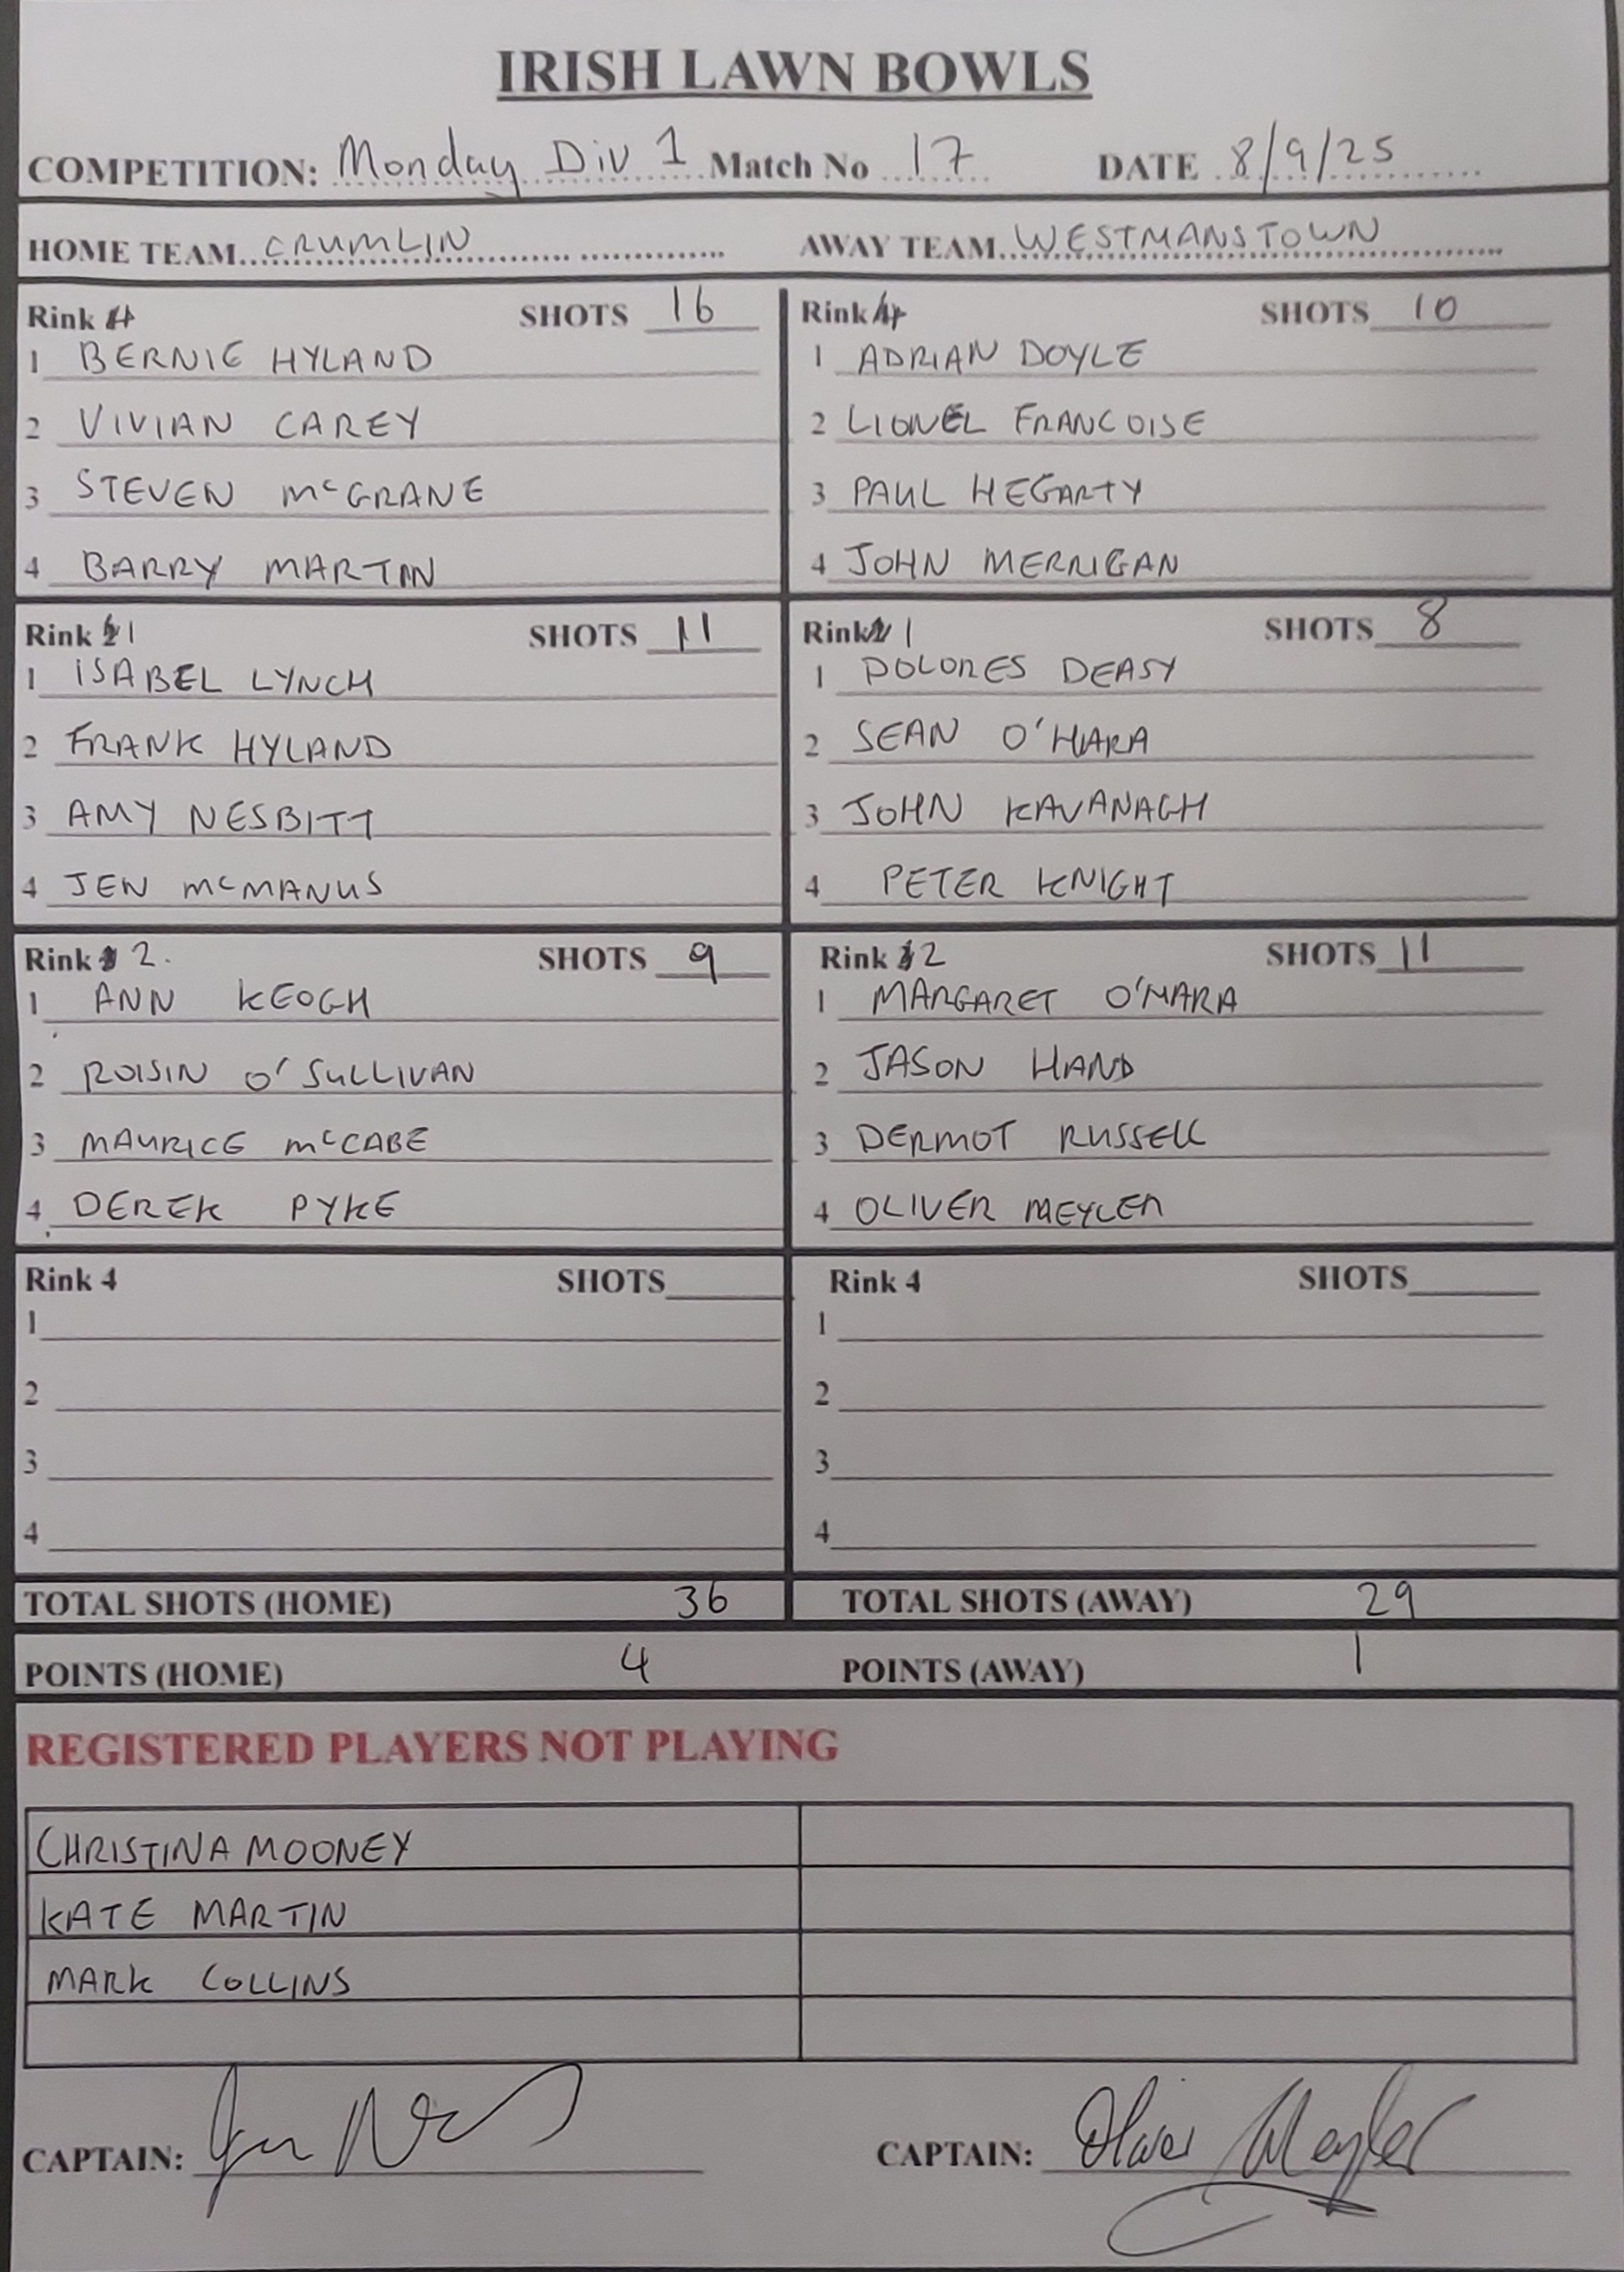 IRISH LAWN BOWLS
COMPETITION: Monday Div 1 Match No 17 DATE 8/9/25
HOME TEAM CRUMLIN AWAY TEAM WESTMANSTOWN
Rink 4 SHOTS 16
1 BERNIE HYLAND
2 VIVIAN CAREY
3 STEVEN McGRANE
4 BARRY MARTIN
Rink 4 SHOTS 10
1 ADRIAN DOYLE
2 LIONEL FRANCOISE
3 PAUL HEGARTY
4 JOHN MERRIGAN
Rink 1 SHOTS 11
1 ISABEL LYNCH
2 FRANK HYLAND
3 AMY NESBITT
4 JEN McMANUS
Rink 1 SHOTS 8
1 DOLORES DEASY
2 SEAN O'HARA
3 JOHN KAVANAGH
4 PETER KNIGHT
Rink 2. SHOTS 9
1 ANN KEOGH
2 ROISIN O'SULLIVAN
3 MAURICE McCABE
4 DEREK PYKE
Rink 2 SHOTS 11
1 MARGARET O'MARA
2 JASON HAND
3 DERMOT RUSSELL
4 OLIVER MEYLER
Rink 4 SHOTS
1
2
3
4
Rink 4 SHOTS
1
2
3
4
TOTAL SHOTS (HOME) 36 TOTAL SHOTS (AWAY) 29
POINTS (HOME) 4 POINTS (AWAY) 1
REGISTERED PLAYERS NOT PLAYING
CHRISTINA MOONEY
KATE MARTIN
MARK COLLINS
CAPTAIN: CAPTAIN: Oliver Meyler